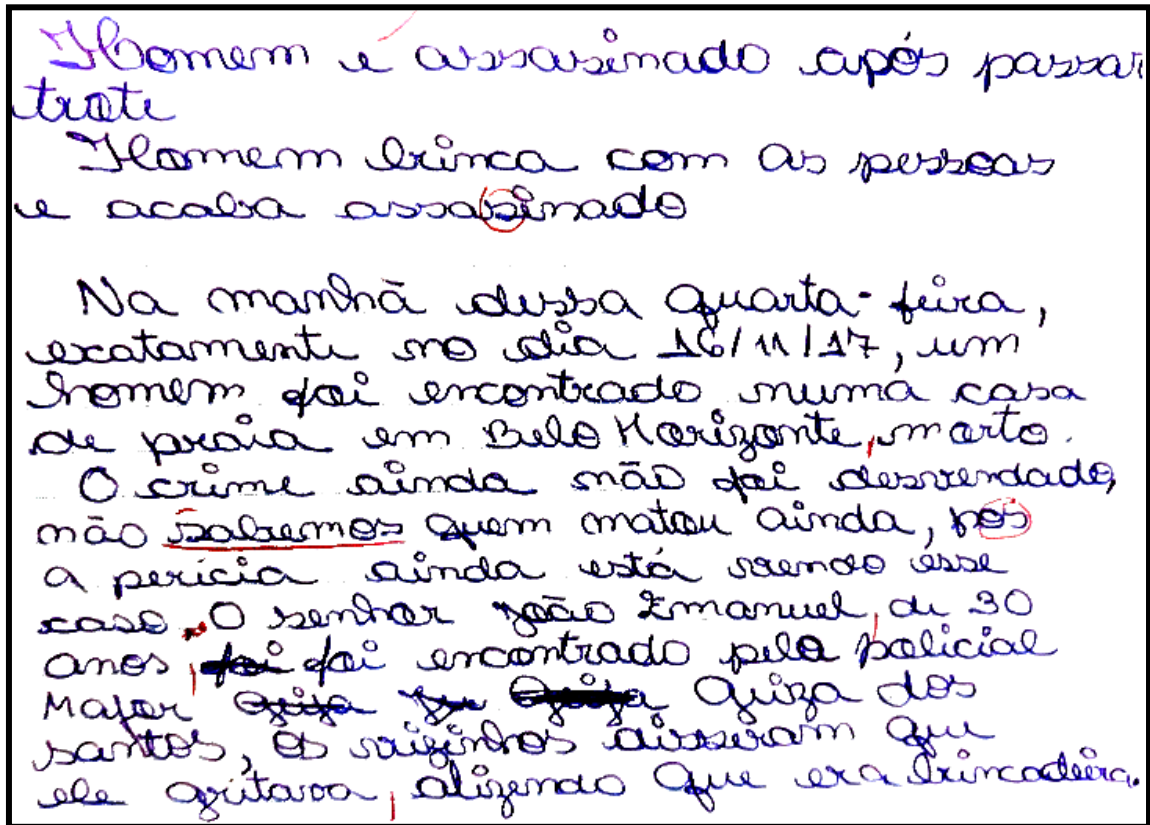 Homem é assassinado após passar
trote
Homem brinca com as pessoas
e acaba assasinado
Na manhã dessa quarta-feira,
exatamente no dia 16/11/17, um
homem foi encontrado numa casa
de praia em Belo Horizonte, morto.
O crime ainda não foi desvendado,
não sabemos quem matou ainda, pos
a perícia ainda está vendo esse
caso. O senhor João Emanuel, de 30
anos, foi encontrado pela policial
Major Quiza dos
santos, os vizinhos disseram que
ele gritava, dizendo que era brincadeira.